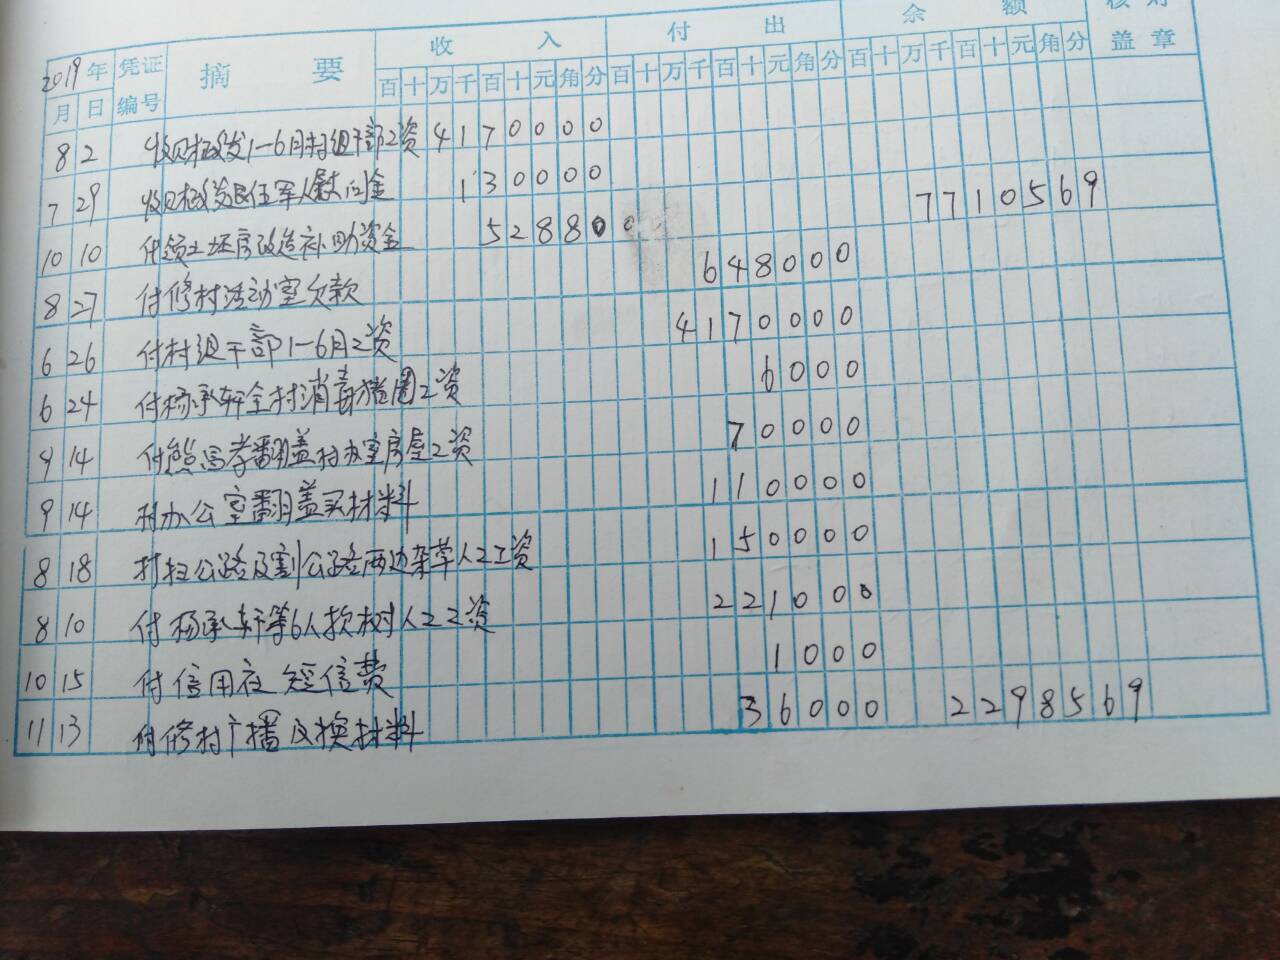 2019年 凭证 摘要 收入 付出 余额 核对
月 日 编号 百十万千百十元角分 百十万千百十元角分 百十万千百十元角分 盖章
8 2 收财政发1-6月村组干部工资 4170000
7 29 收财政发退伍军人慰问金 130000
10 10 付领土坯房改造补助资金 528800 7710569
8 27 付修村活动室欠款 648000
6 26 付村组干部1-6月工资 4170000
6 24 付杨承轩全村消毒猪圈工资 6000
9 14 付熊 孝翻盖村办室房屋工资 70000
9 14 村办公室翻盖买材料 110000
8 18 打扫公路及割公路两边杂草人工工资 150000
8 10 付杨承轩等6人 树人工工资 221000
10 15 付信用社短信费 1000
11 13 付修村广播及换材料 36000 2298569